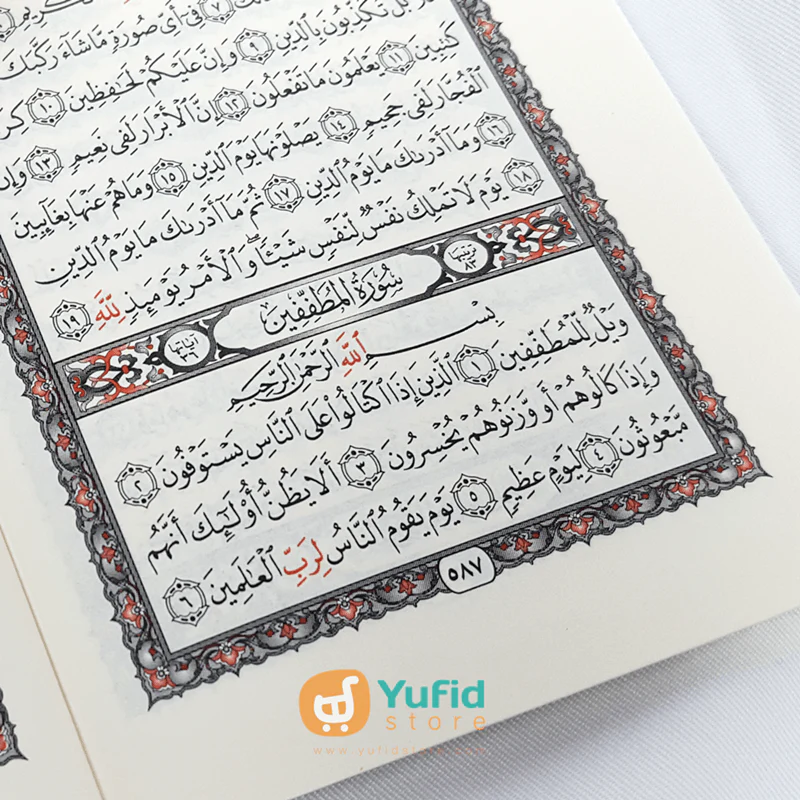 فِىٓ أَىِّ صُورَةٍ مَّا شَآءَ رَكَّبَكَ
بَلْ تُكَذِّبُونَ بِٱلدِّينِ ٩ وَإِنَّ عَلَيْكُمْ لَحَٰفِظِينَ ١٠
كَٰتِبِينَ ١١ يَعْلَمُونَ مَا تَفْعَلُونَ ١٢ إِنَّ ٱلْأَبْرَارَ لَفِى نَعِيمٍ ١٣ وَإِنَّ
ٱلْفُجَّارَ لَفِى جَحِيمٍ ١٤ يَصْلَوْنَهَا يَوْمَ ٱلدِّينِ ١٥ وَمَا هُمْ عَنْهَا بِغَآئِبِينَ
١٦ وَمَآ أَدْرَىٰكَ مَا يَوْمُ ٱلدِّينِ ١٧ ثُمَّ مَآ أَدْرَىٰكَ مَا يَوْمُ ٱلدِّينِ
١٨ يَوْمَ لَا تَمْلِكُ نَفْسٌ لِّنَفْسٍ شَيْـًٔا ۖ وَٱلْأَمْرُ يَوْمَئِذٍ لِّلَّهِ ١٩
ترتيبها ٨٣ سُورَةُ المُطَفِّفِينَ آياتها ٣٦
بِسْمِ ٱللَّهِ ٱلرَّحْمَٰنِ ٱلرَّحِيمِ
وَيْلٌ لِّلْمُطَفِّفِينَ ١ ٱلَّذِينَ إِذَا ٱكْتَالُوا۟ عَلَى ٱلنَّاسِ يَسْتَوْفُونَ ٢
وَإِذَا كَالُوهُمْ أَو وَّزَنُوهُمْ يُخْسِرُونَ ٣ أَلَا يَظُنُّ أُو۟لَٰٓئِكَ أَنَّهُم
مَّبْعُوثُونَ ٤ لِيَوْمٍ عَظِيمٍ ٥ يَوْمَ يَقُومُ ٱلنَّاسُ لِرَبِّ ٱلْعَٰلَمِينَ ٦
٥٨٧
Yufid
store
www.yufidstore.com